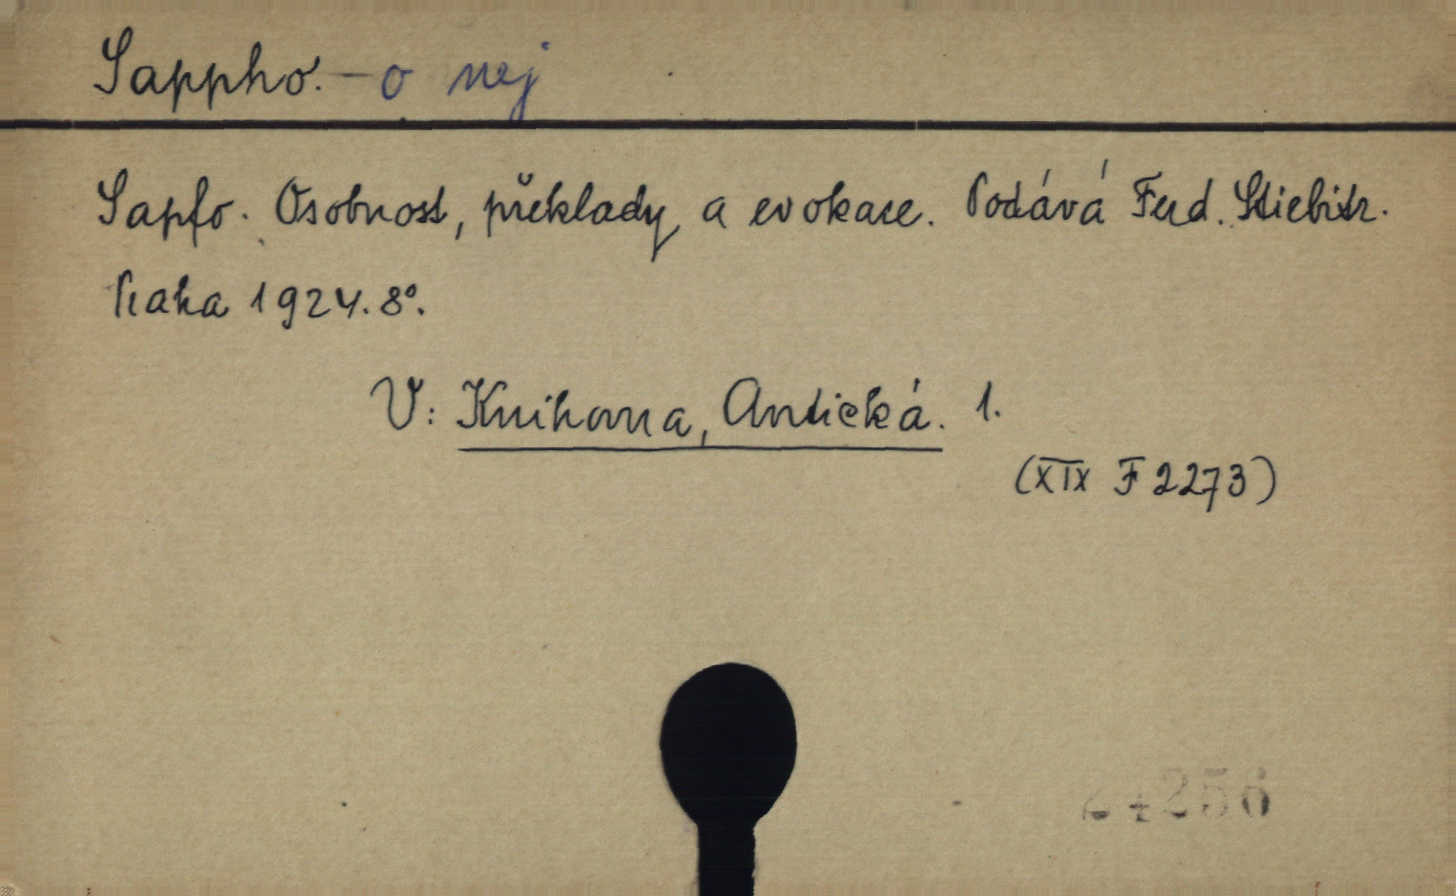 Sappho. - o nej
Sapfo. Osobnost, překlady a evokace. Podává Ferd. Stiebitz.
Praha 1924. 8°.
V: Knihovna, Antická. 1.
(XIX F 2273)
24256